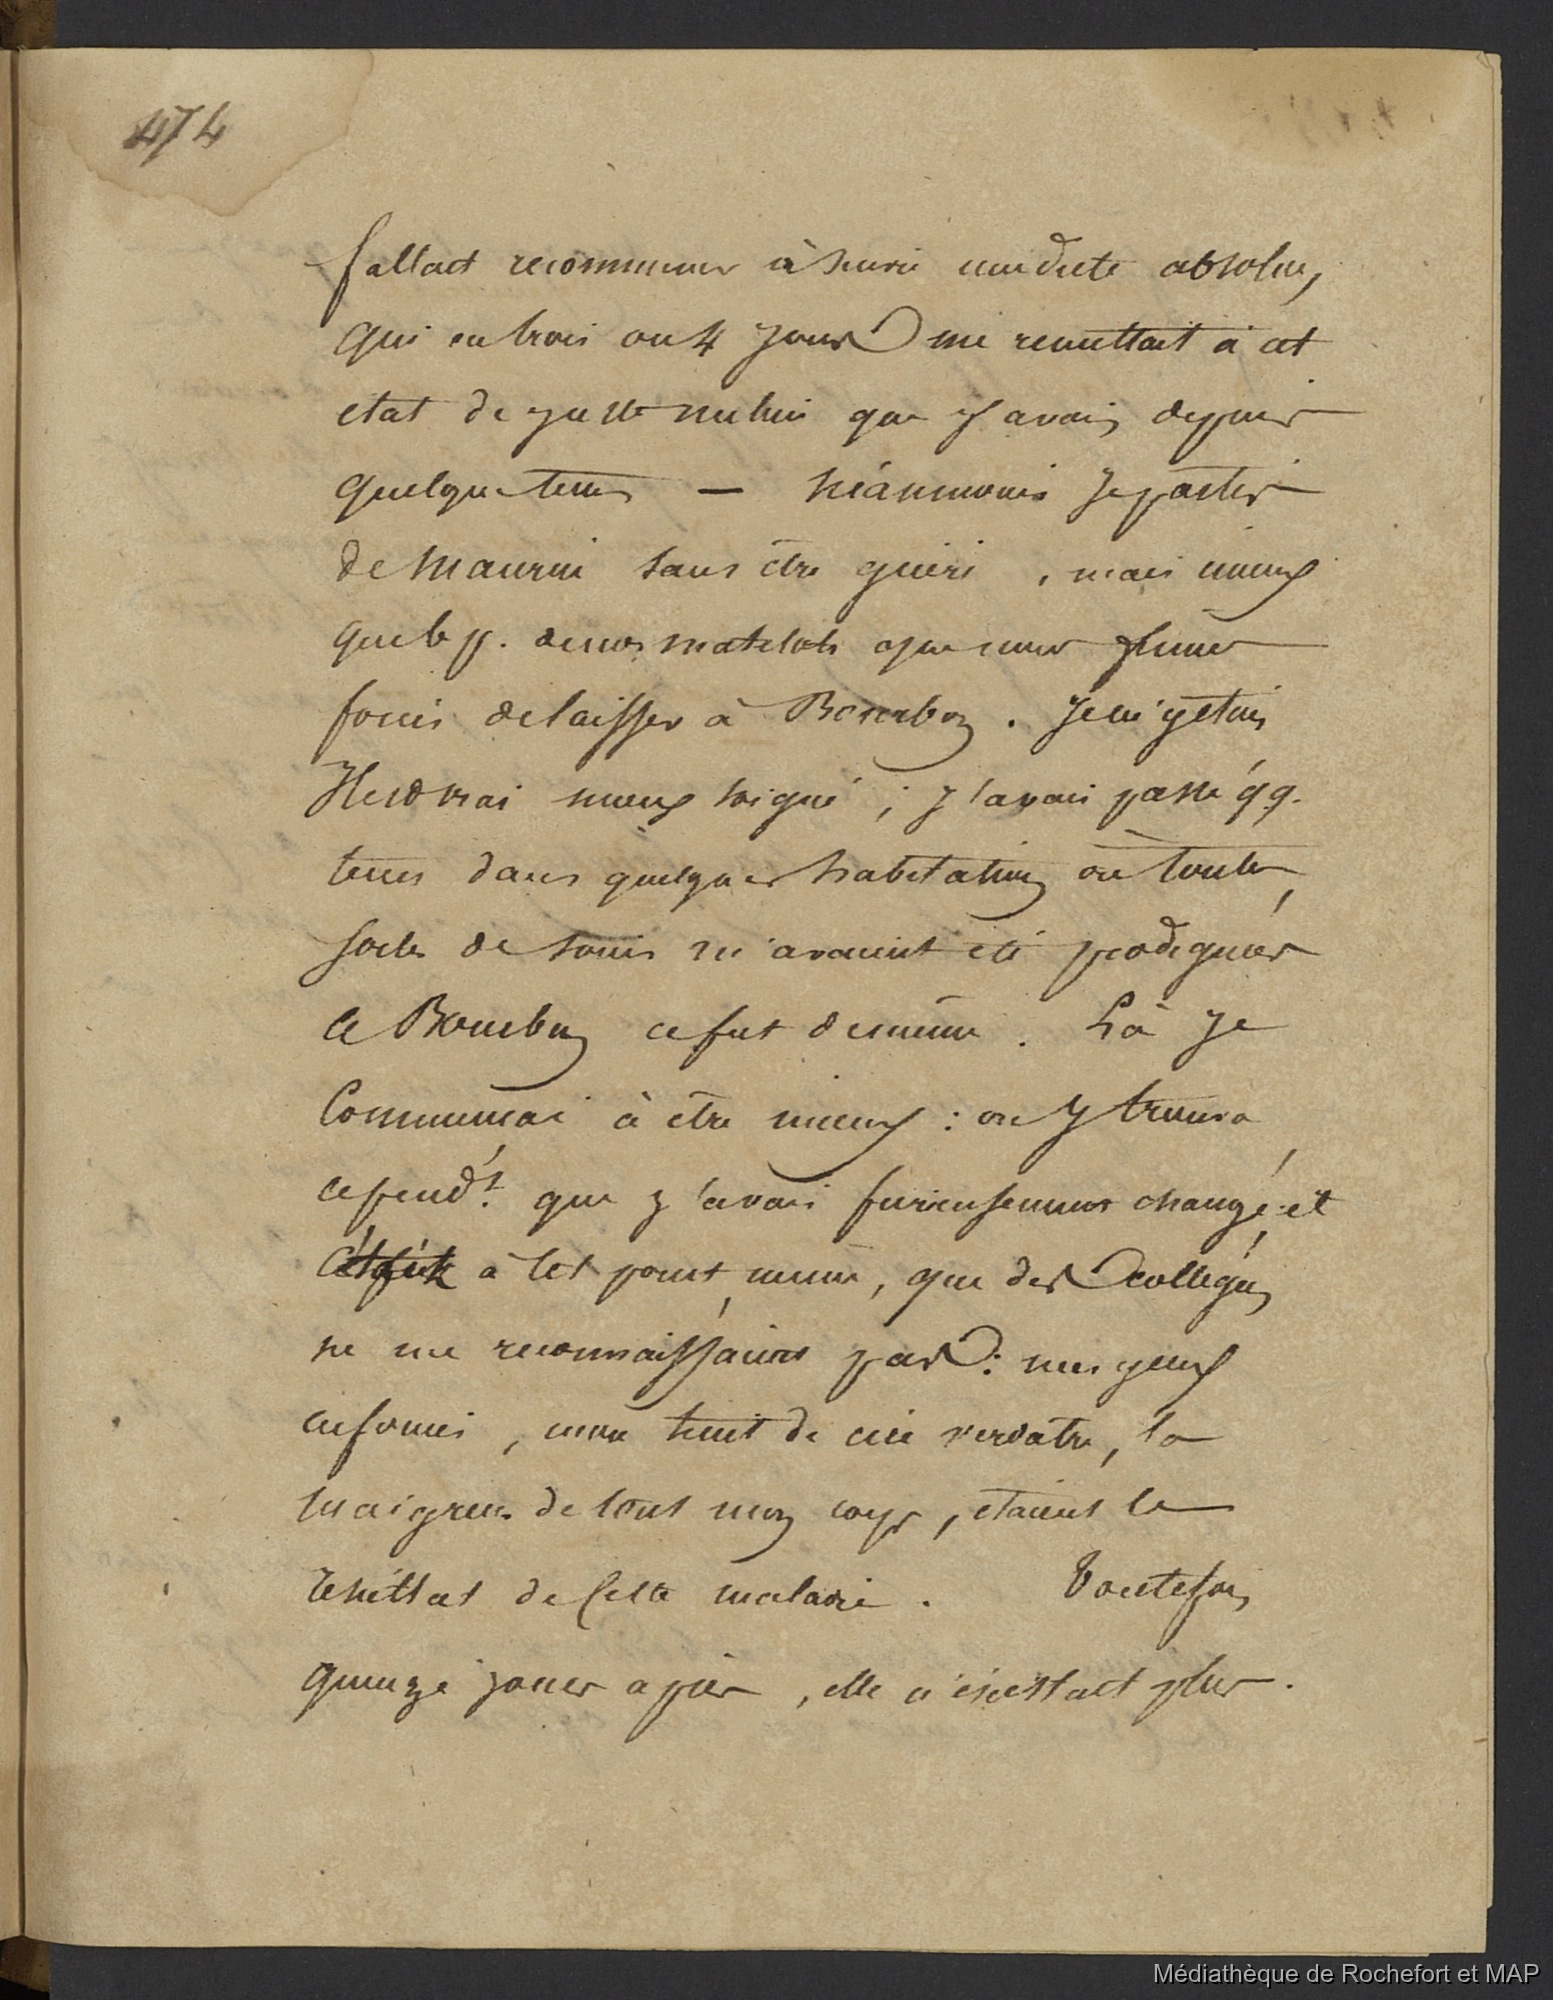 474
fallait recommencer à suivre une diete absolue,
qui en trois ou 4 jours me remettait à cet
etat de juste milieu que j'avais depuis
quelque tems — néanmoins je partis
de Maurice sans être guéri, mais mieux
que le p. de nos matelots que nous fumes
forcés de laisser à Bourbon. Je m'y etais
il est vrai mieux soigné ; j'avais passé qq.
tems dans quelques habitations où toutes
sortes de soins m'avaient été prodigués
a Bourbon ce fut de même. Là je
commencai à être mieux : on y trouva
cepend.t que j'avais furieusement changé, et
à tel point même, que des collègues
ne me reconnaissaient pas : mes yeux
enfoncés, mon teint de cire verdatre, la
maigreur de tout mon corps, etaient le
résultat de cette maladie. Toutefois
quinze jours après, elle n'éxistait plus.
Médiathèque de Rochefort et MAP